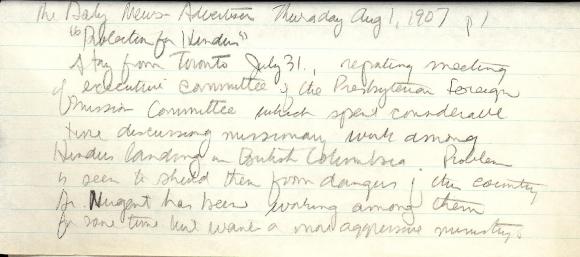 The Daily News-Advertiser Thursday Aug 1, 1907 p 1
"Protection for Hindus"
Story from Toronto July 31, reporting meeting
of executive committee of the Presbyterian Foreign
Mission Committee which spent considerable
time discussing missionary work among
Hindus landing in British Columbia Problem
is seen to shield them from dangers of this country
Dr. Nugent has been working among them
for some time but want a more aggressive ministry